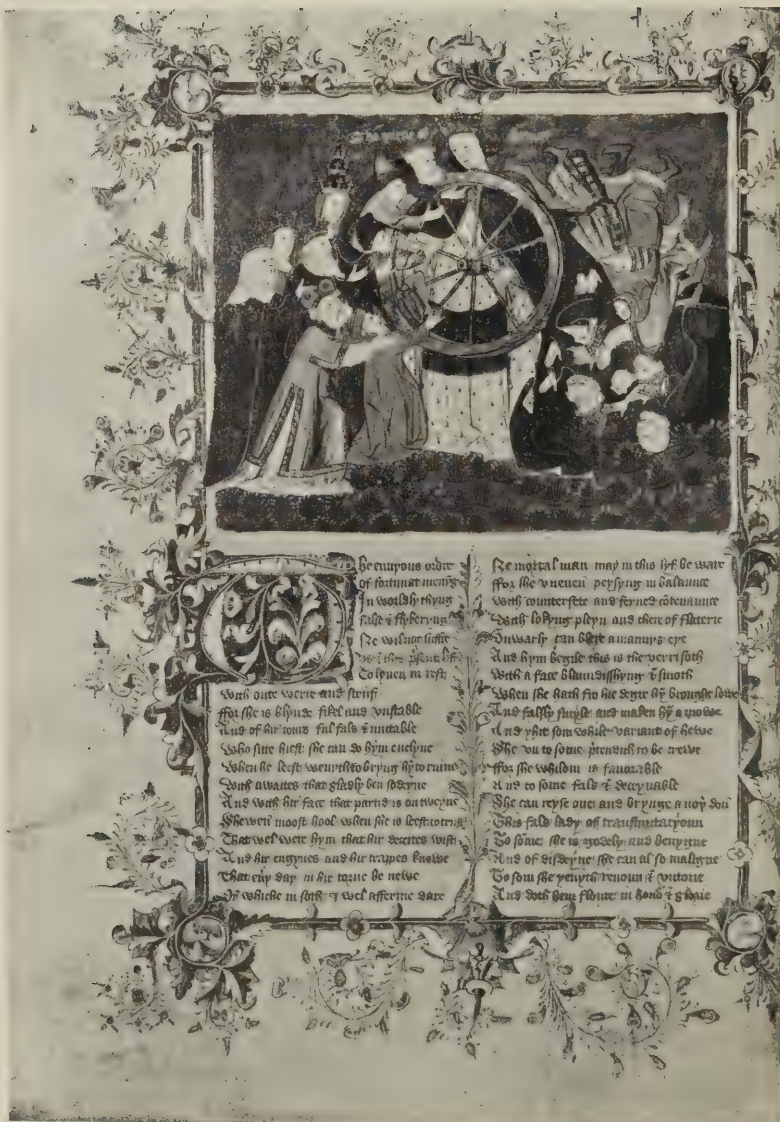 The enuyous ordre
of fortunat meuyng
In worldly thyng
fals & flykeryng
Ne wil not suffre
us i this present lyf
To lyuen in rest
with oute werre and stryf
ffor she is blynde fikel and vnstable
And of hir cours ful fals & mutable
Who sitte hiest she can do hym enclyne
When he leest weneth to bryng hy to ruine
With awaites that gladly ben sodeyne
And with hir face that partid is on tweyne
Shewen moost hool when she is leest to trist
That wel were hym that hir deceites wist
And hir engynes and hir trappes knowe
That eny day in hir torne be newe
In whiche in soth I wel afferme dare
Ne mortal man may in this lyf be ware
ffor she vneuen peysyng in balaunce
With counterfete and feyned cotenaunce
With lokyng pleyn and chere of flaterie
Unwarly can blere a mannys eye
And hym begile this is the verri soth
With a face blaundisshyng & smoth
When she hath fro his degre hy brought lowe
And falsly smyle and maken hy a mowe
And yhit som while variant of hewe
She vn to some pretendith to be trewe
ffor she whilom is fauorable
And to some fals & deceyuable
She can reyse one and brynge a noy doun
This fals lady off transmutacyoun
To some she is goodely and benygne
And of disdeyne she can al so maligne
To som she yeuyth renoun & victorie
And doth hem floure in honor & glorie